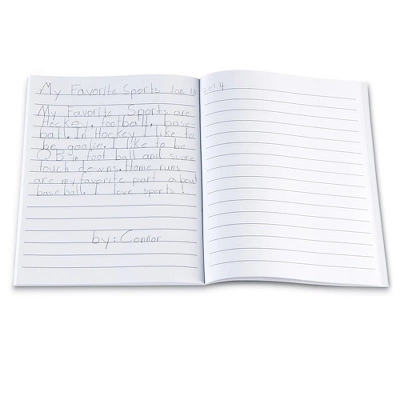 My Favorite Sports Jan 10 2014
My Favorite Sports are
Hockey, football, base
ball. In Hockey I like to
be goalie. I like to be
Q.B. in foot ball and score
touch downs. Home runs
are my favorite part about
baseball. I love sports!
by: Connor